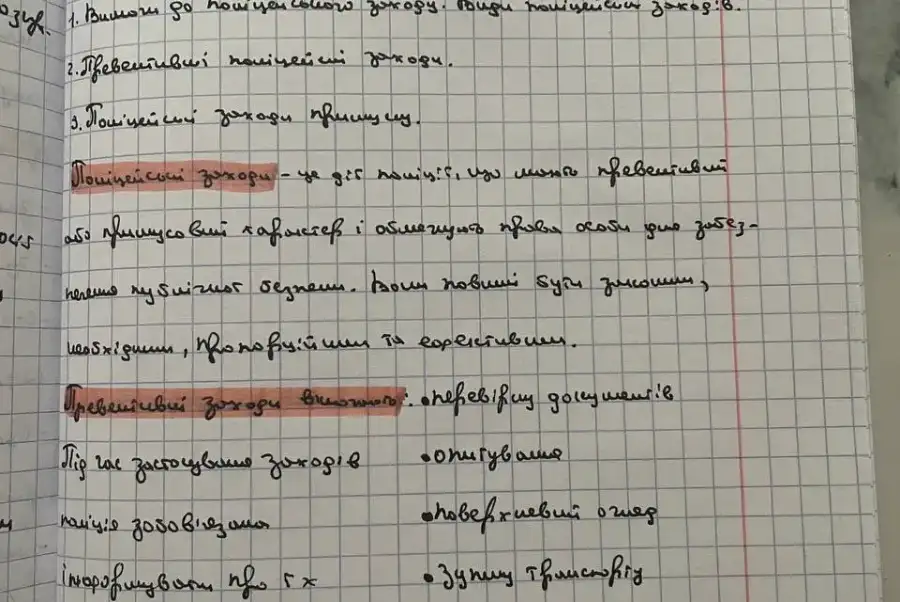 1. Вимоги до поліцейського заходу. Види поліцейських заходів.
2. Превентивні поліцейські заходи.
3. Поліцейські заходи примусу.
Поліцейські заходи – це дії поліції, що мають превентивний
або примусовий характер і обмежують права особи для забез-
печення публічної безпеки. Вони повинні бути законними,
необхідними, пропорційними та ефективними.
Превентивні заходи включають: • перевірку документів
Під час застосування заходів • опитування
поліція зобов'язана • поверхневий огляд
інформувати про їх • зупинку транспорту